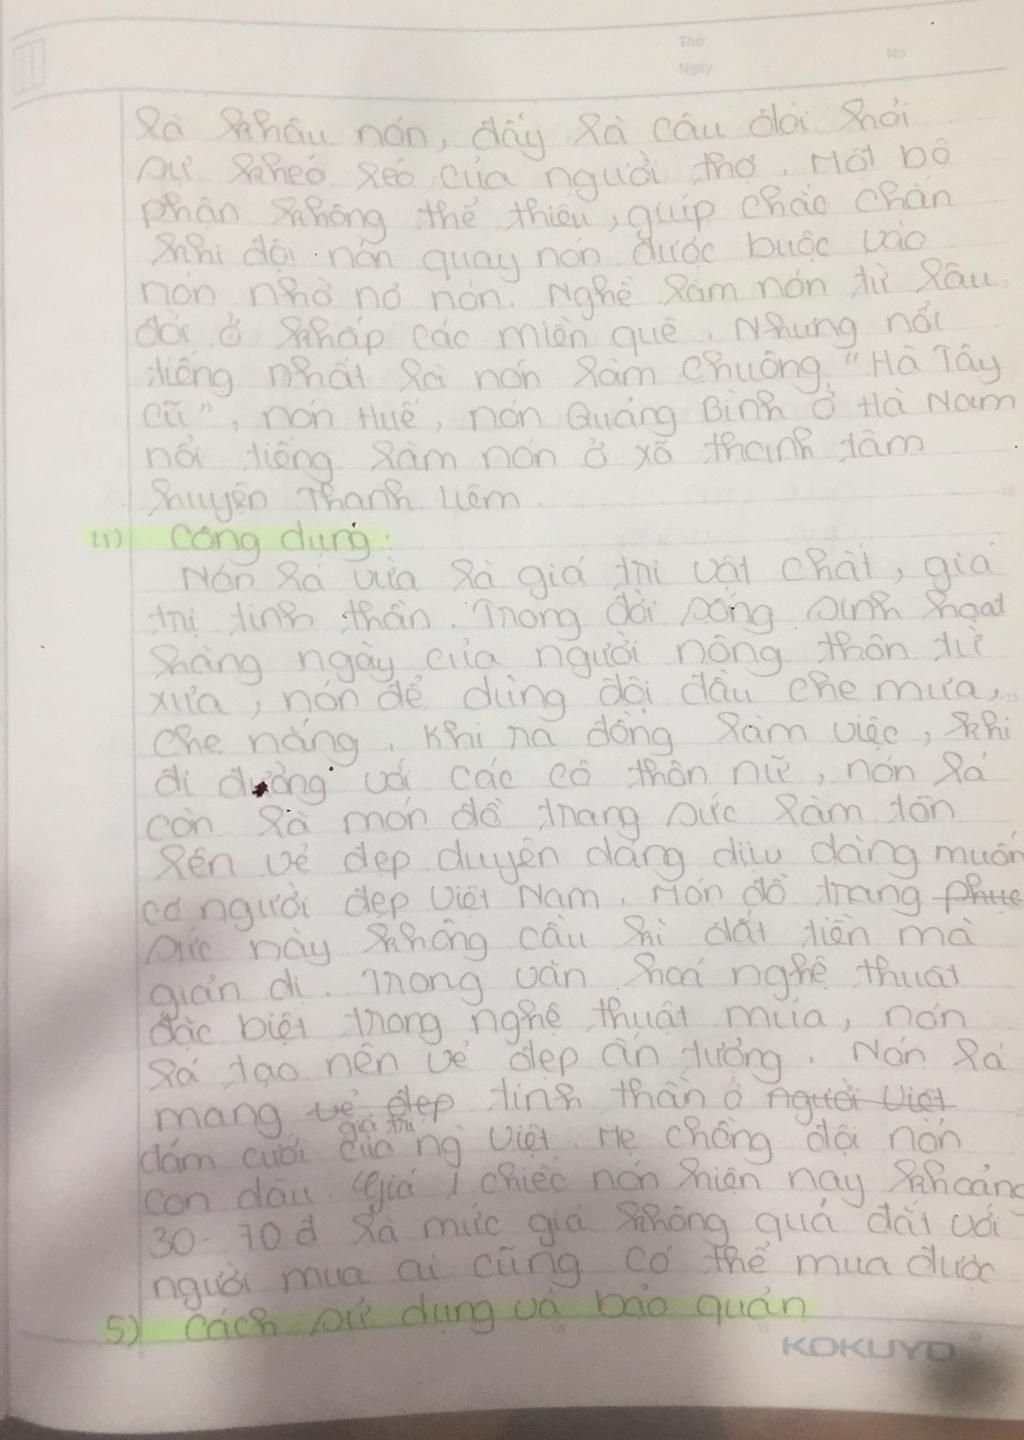 Thứ
Ngày No.
là khâu nón, đấy là câu đòi hỏi
sự khéo léo của người thợ. Một bộ
phận không thể thiếu, giúp chắc chắn
khi đội nón quay nón được buộc vào
nón nhờ nơ nón. Nghề làm nón từ lâu
đời ở khắp các miền quê. Nhưng nổi
tiếng nhất là nón làm chuông "Hà Tây
cũ", nón Huế, nón Quảng Bình ở Hà Nam
nổi tiếng làm nón ở xã thanh tâm
huyện Thanh Liêm.
Công dụng:
Nón lá vừa là giá trị vật chất, giá
trị tinh thần. Trong đời sống sinh hoạt
hàng ngày của người nông thôn từ
xưa, nón để dùng đội đầu che mưa,
che nắng. Khi ra đồng làm việc, khi
đi đường với các cô thôn nữ, nón lá
còn là món đồ trang sức làm tôn
lên vẻ đẹp duyên dáng dịu dàng muôn
người đẹp Việt Nam. Món đồ trang phục
sức này không cầu kì đắt tiền mà
giản dị. Trong văn hoá nghệ thuật
đặc biệt trong nghệ thuật múa, nón
lá tạo nên vẻ đẹp ấn tượng. Nón lá
mang vẻ đẹp tinh thần ở người Việt
giá trị
đám cưới của ng Việt. Mẹ chồng đội nón
con dâu. Giá 1 chiếc nón hiện nay khoảng
30-70đ là mức giá không quá đắt với
người mua ai cũng có thể mua được
5) Cách sử dụng và bảo quản
KOKUYO